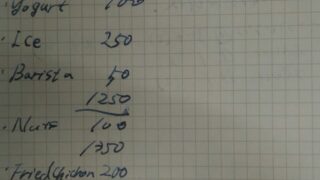 · Yogurt 100
· Ice 250
· Barista 50
1250
· Nuts 100
1350
· Fried Chicken 200